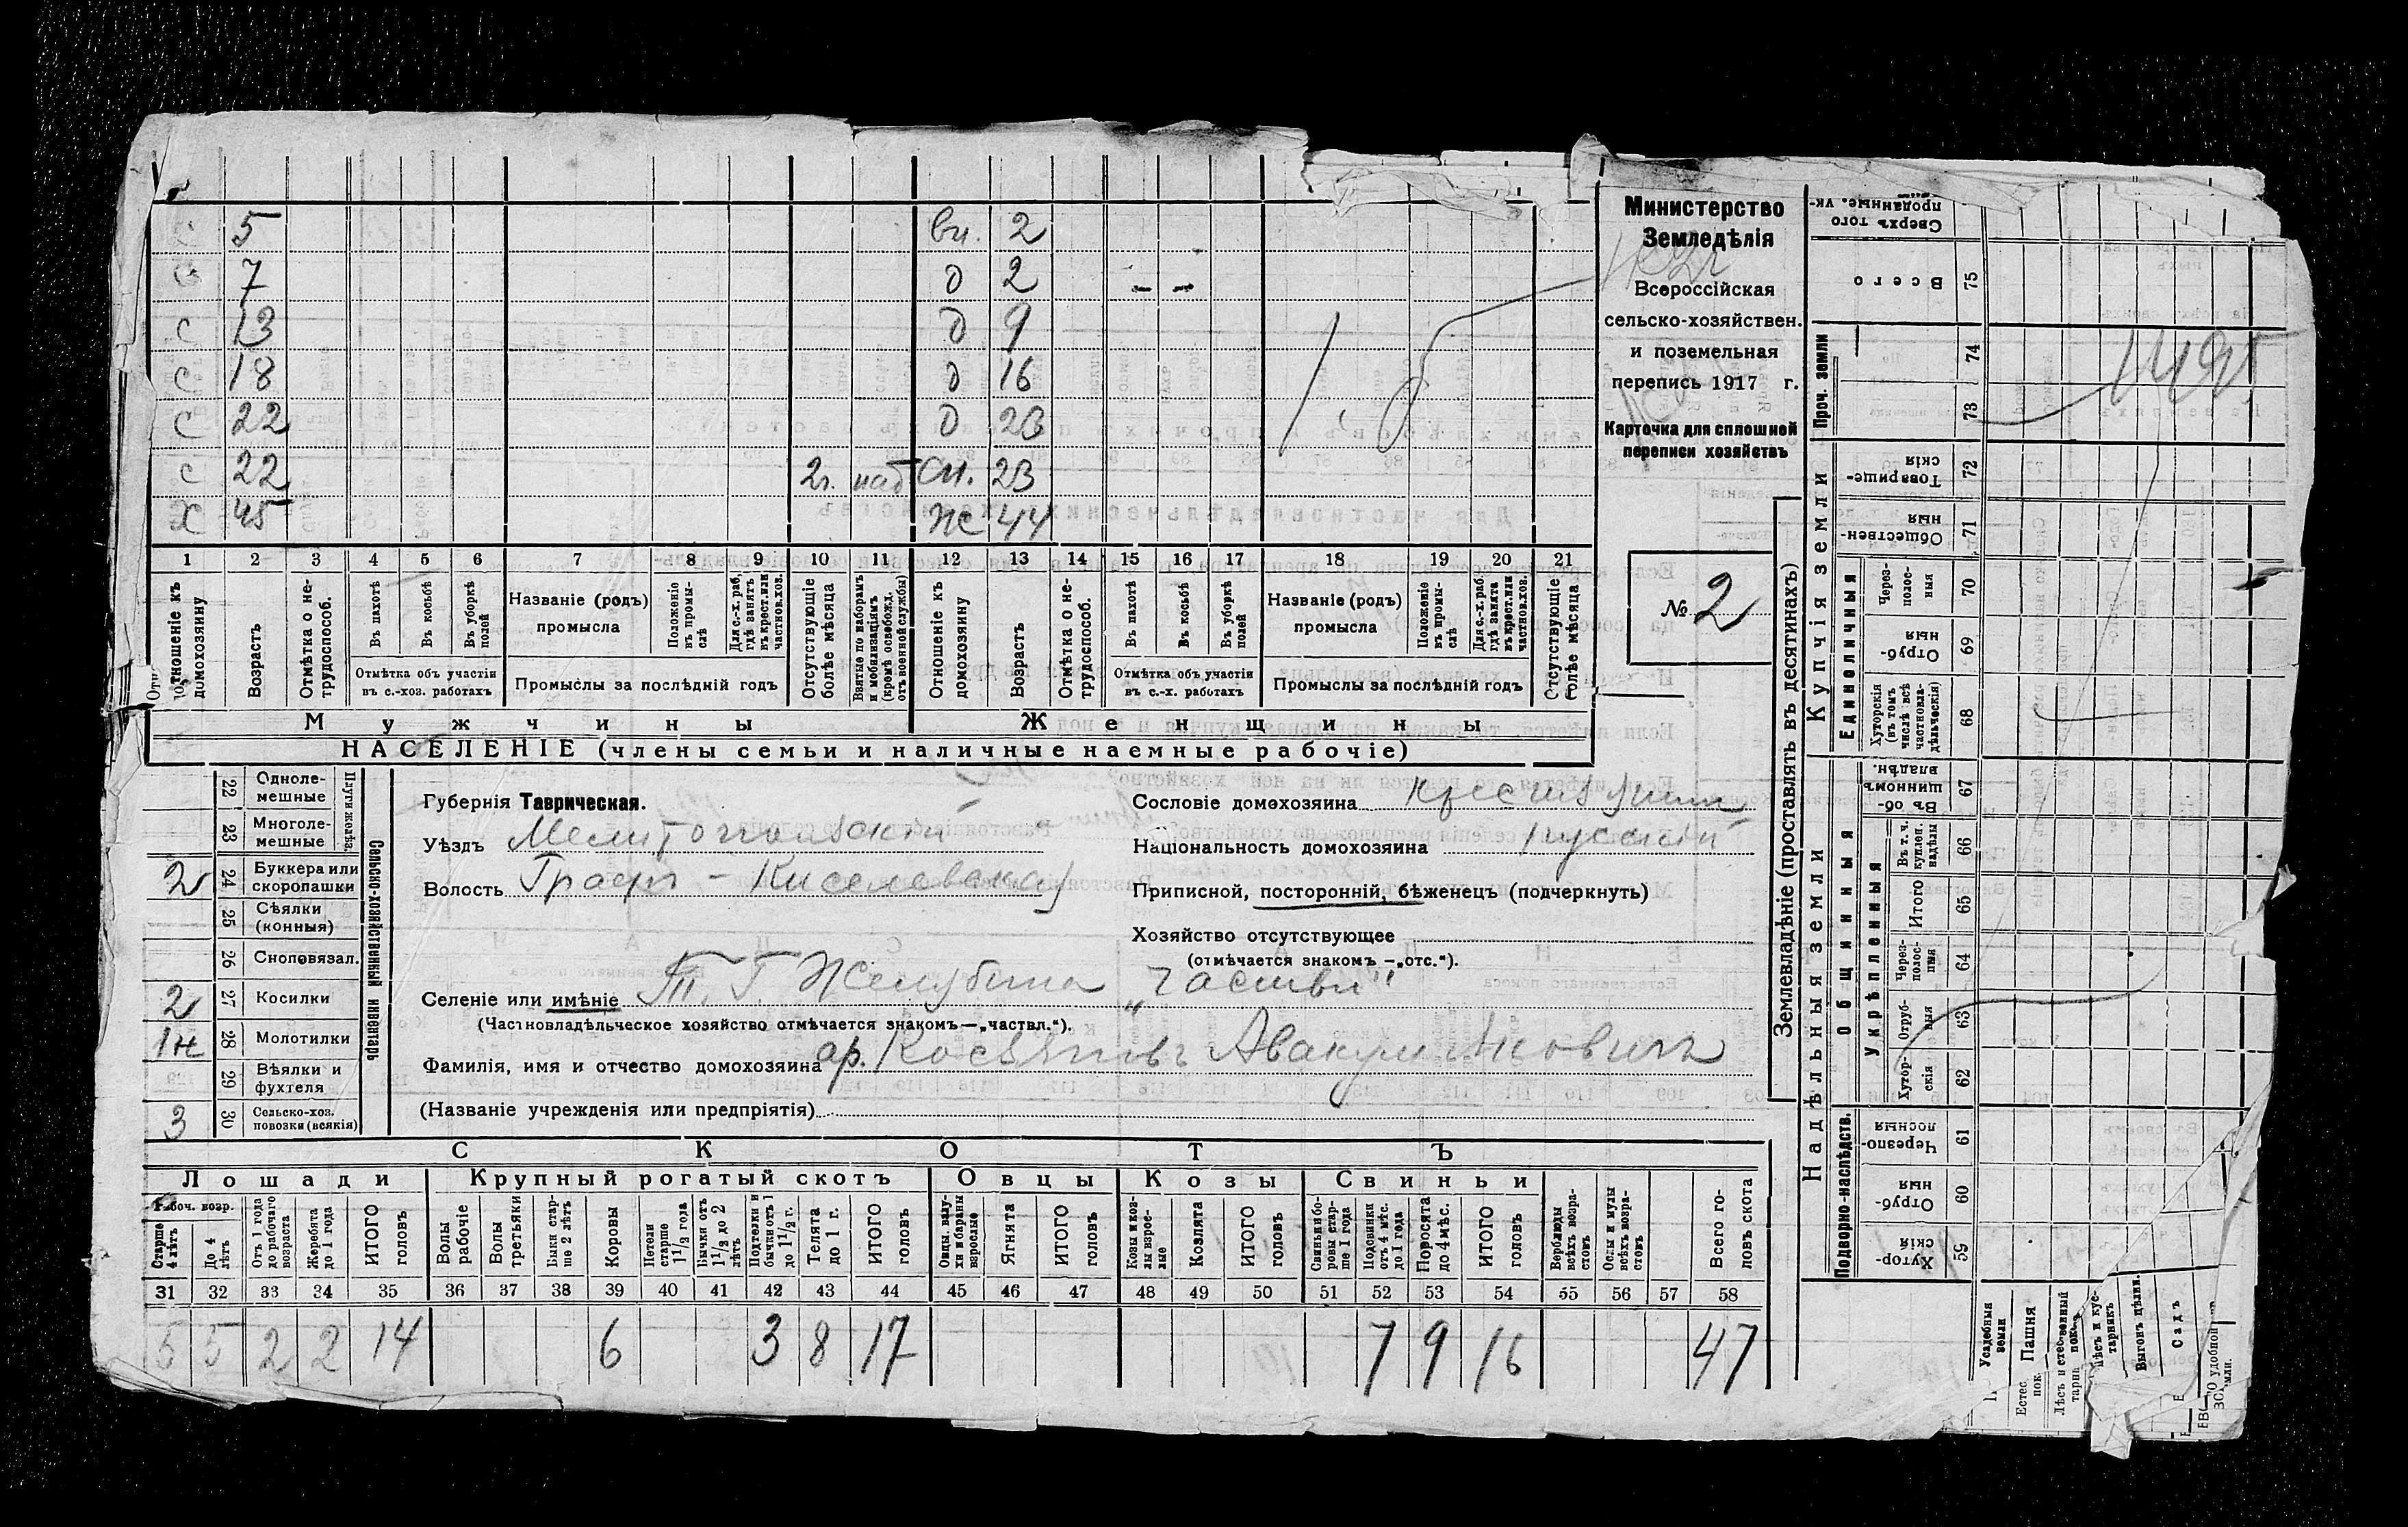 5 вн. 2
7 д 2 - -
с 13 д 9
с 18 д 16
с 22 д 20
с 22 2г. наб сн. 23
Х 45 Ж 44
1 2 3 4 5 6 7 8 9 10 11 12 13 14 15 16 17 18 19 20 21
Отношеніе къ домохозяину
Возрастъ
Отмѣтка о не-трудоспособ.
Въ пахотѣ
Въ косьбѣ
Въ уборкѣ полей
Отмѣтка объ участіи
въ с.-хоз. работахъ
Названіе (родъ)
промысла
Положеніе въ промы-слѣ
Для с.-х. раб. гдѣ занятъ въ крест. или частнов. хоз.
Промыслы за послѣдній годъ
Отсутствующіе болѣе мѣсяца
Взятые по наборамъ и мобилизаціямъ (кромѣ освобожд. отъ военной службы)
Отношеніе къ домохозяину
Возрастъ
Отмѣтка о не-трудоспособ.
Въ пахотѣ
Въ косьбѣ
Въ уборкѣ полей
Отмѣтка объ участіи
въ с.-х. работахъ
Названіе (родъ)
промысла
Положеніе въ промы-слѣ
Для с.-х. раб. гдѣ занята въ крест. или частнов. хоз.
Промыслы за послѣдній годъ
Отсутствующіе болѣе мѣсяца
Мужчины
Женщины
НАСЕЛЕНІЕ (члены семьи и наличные наемные рабочіе)
Министерство
Земледѣлія
Всероссійская
сельско-хозяйствен.
и поземельная
перепись 1917 г.
Карточка для сплошной
переписи хозяйствъ
№ 2
Сельско-хозяйственный инвентарь
22 Одноле-
мешные
23 Многоле-
мешные
2 24 Буккера или
скоропашки
25 Сѣялки
(конныя)
26 Сноповязал.
2 27 Косилки
1 к 28 Молотилки
29 Вѣялки и
фухтеля
3 30 Сельско-хоз.
повозки (всякія)
Губернія Таврическая.
Уѣздъ Мелитопольскій
Волость Графъ-Киселевская
Селеніе или имѣніе Т. Г. Желубина „частвл"
(Частновладѣльческое хозяйство отмѣчается знакомъ—„частвл.").
Фамилія, имя и отчество домохозяина ар. Авакум
(Названіе учрежденія или предпріятія)
Сословіе домохозяина крестьянин
Національность домохозяина русскій
Приписной, посторонній, бѣженецъ (подчеркнуть)
Хозяйство отсутствующее
(отмѣчается знакомъ —„отс.").
СКОТЪ
Лошади Крупный рогатый скотъ Овцы Козы Свиньи
Рабоч. возр.
Старше 4 лѣтъ
До 4 лѣтъ
Отъ 1 года до рабочаго возраста
Жеребята до 1 года
ИТОГО головъ
Волы рабочіе
Волы третьяки
Быки стар-ше 2 лѣтъ
Коровы
Нетели старше 1 1/2 года
Бычки отъ 1 1/2 до 2 лѣтъ
Подтелки и бычки отъ 1 до 1 1/2 г.
Телята до 1 г.
ИТОГО головъ
Овцы, валу-хи и бараны взрослые
Ягнята
ИТОГО головъ
Козы и коз-лы взрос-лые
Козлята
ИТОГО головъ
Свиньи и бо-ровы стар-ше 1 года
Подсвинки отъ 4 мѣс. до 1 года
Поросята до 4 мѣс.
ИТОГО головъ
Верблюды всѣхъ возра-стовъ
Ослы и мулы всѣхъ возра-стовъ
Всего го-ловъ скота
31 32 33 34 35 36 37 38 39 40 41 42 43 44 45 46 47 48 49 50 51 52 53 54 55 56 57 58
5 5 2 2 14 6 3 8 17 7 9 16 47
Землевладѣніе (проставлять въ десятинахъ)
Надѣльныя земли
Купчія земли
Проч. земли
Подворно-наслѣдств.
Общинныя
Укрѣпленныя
Единоличныя
Сверхъ того проданные, ук-
Всего 75
74
73
Товарище-скія 72
Обществен-ныя 71
Через-полос-ныя 70
Отруб-ныя 69
Хуторскія (въ томъ числѣ всѣ частновла-дѣльческія) 68
Въ об-щинномъ владѣн. 67
Въ т. ч. куплен. надѣлы 66
Итого 65
Через-полос-ныя 64
Отруб-ныя 63
Хутор-скія 62
Черезпо-лосныя 61
Отруб-ныя 60
Хутор-скія 59
Усадебныя земли
Пашня
Выгонъ дѣлин.
Садъ